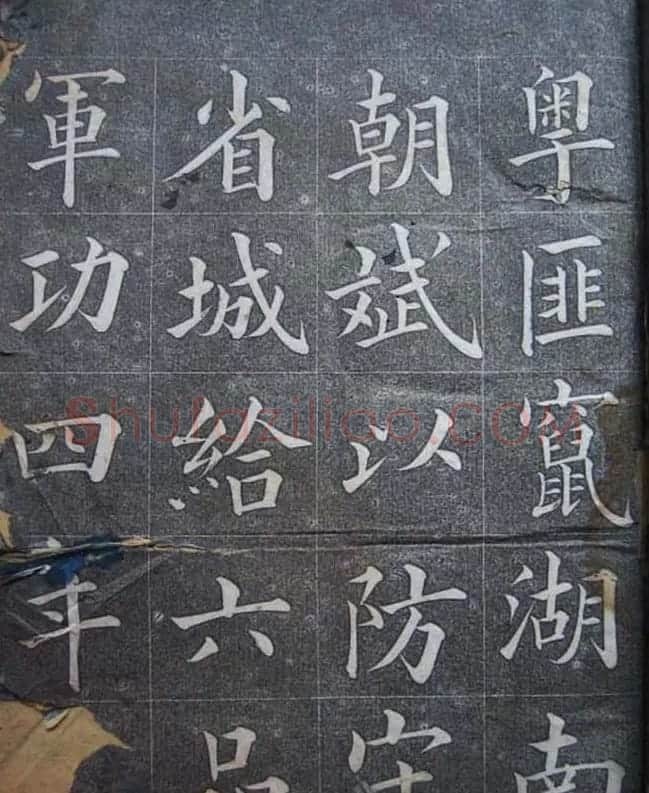 粵匪竄湖南
朝斌以防守
省城給六品
軍功四年
shufaziliao.COM